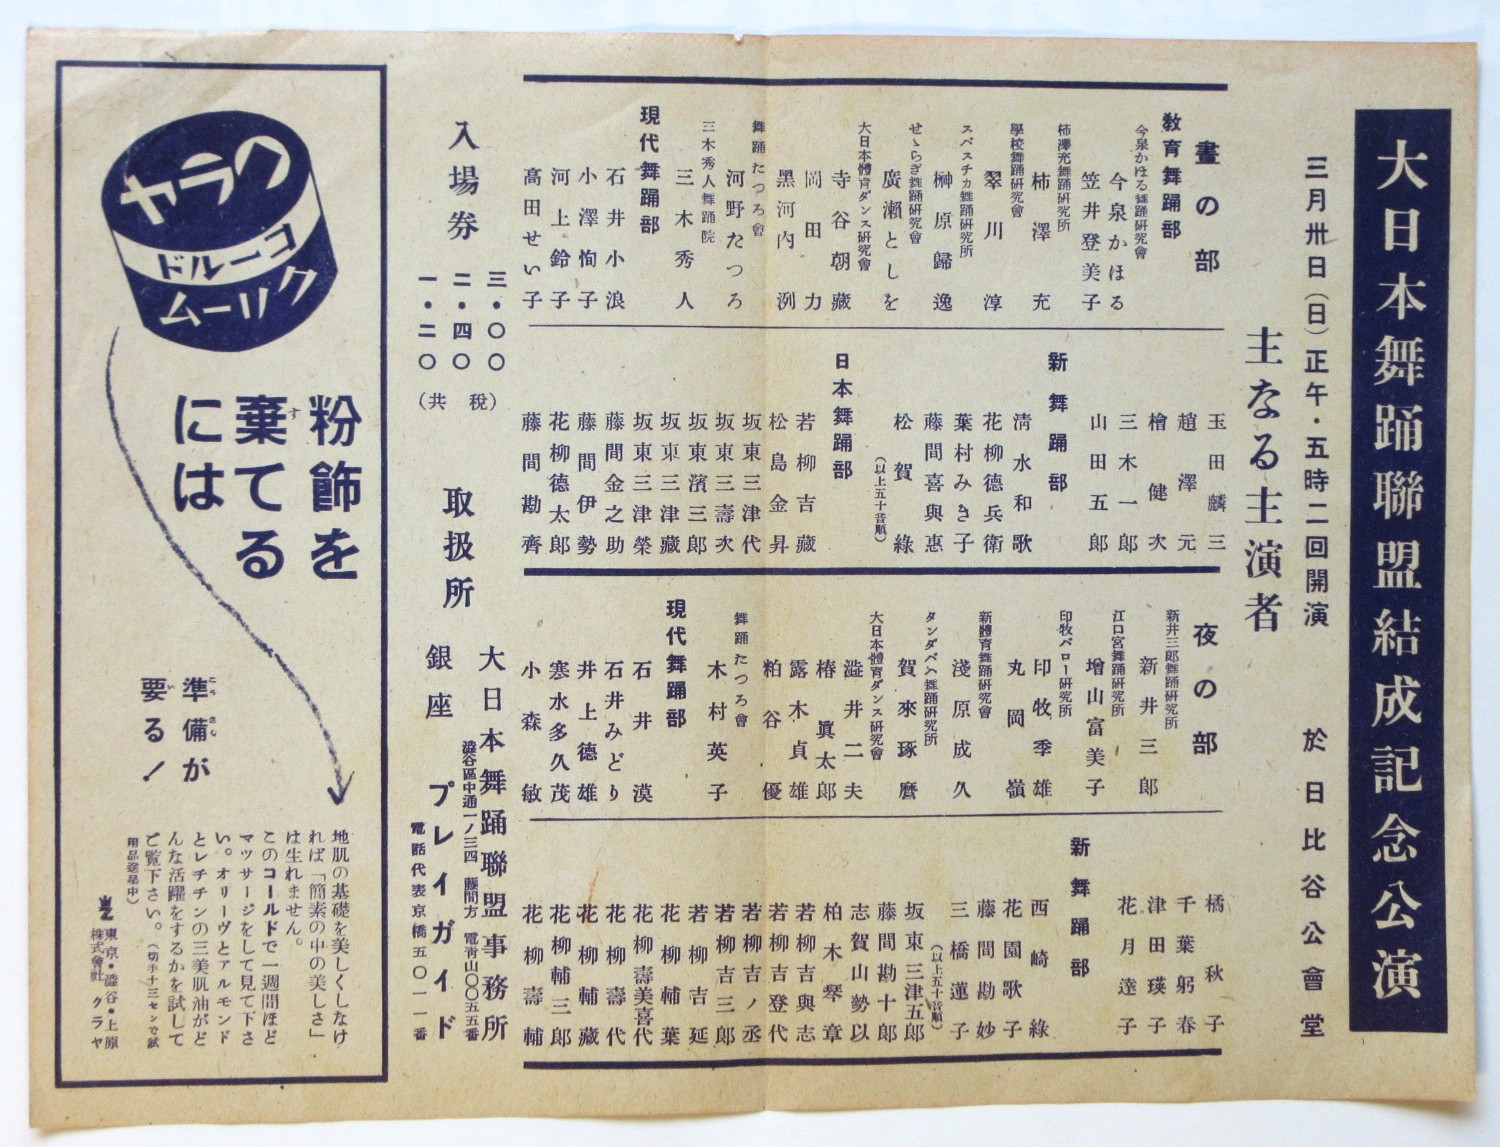 大日本舞踊聯盟結成記念公演
三月卅日(日)正午・五時二回開演 於日比谷公會堂
主なる主演者
晝の部
教育舞踊部
今泉かほる舞踊研究會
今泉かほる
笠井登美子
柿澤充舞踊研究所
柿澤充
學校舞踊研究會
翠川淳
スバスチカ舞踊研究所
榊原歸逸
せゝらぎ舞踊研究會
廣瀬としを
大日本體育ダンス研究會
寺谷朝藏
岡田力
黑河內洌
舞踊たつろ會
河野たつろ
三木秀人舞踊院
三木秀人
現代舞踊部
石井小浪
小澤恂子
河上鈴子
高田せい子
玉田麟三
趙澤元
檜健次
三木一郎
山田五郎
新舞踊部
淸水和歌
花柳德兵衛
葉村みき子
藤間喜與惠
松賀綠
(以上五十音順)
日本舞踊部
若柳吉藏
松島金昇
坂東三津代
坂東三壽次
坂東濱三郎
坂東三津藏
坂東三津榮
藤間金之助
藤間伊勢
花柳德太郎
藤間勘齊
夜の部
新井三郎舞踊研究所
新井三郎
江口宮舞踊研究所
增山富美子
印牧バロー研究所
印牧季雄
丸岡嶺
新體育舞踊研究會
淺原成久
タンダバハ舞踊研究所
賀來琢磨
大日本體育ダンス研究會
澁井二夫
椿眞太郎
露木貞雄
粕谷優
舞踊たつろ會
木村英子
現代舞踊部
石井漠
石井みどり
井上德雄
寒水多久茂
小森敏
橘秋子
千葉躬春
津田瑛子
花月達子
新舞踊部
西崎綠
花園歌子
藤間勘妙
三橋蓮子
(以上五十音順)
坂東三津五郎
藤間勘十郎
志賀山勢以
柏木琴章
若柳吉與志
若柳吉登代
若柳吉ノ丞
若柳吉三郎
若柳吉延
花柳輔葉
花柳壽美喜代
花柳壽代
花柳輔藏
花柳輔三郎
花柳壽輔
入場券
三・〇〇
二・四〇
一・二〇
(税共)
取扱所
大日本舞踊聯盟事務所
澁谷區中通一ノ三四 藤間方 電青山〇〇五五番
銀座 プレイガイド
電話代表京橋五〇一一番
クラヤ
コールド
クリーム
粉飾を
棄てる
には
準備が
要る!
地肌の基礎を美しくしなけ
れば「簡素の中の美しさ」
は生れません。
このコールドで一週間ほど
マッサージをして見て下さ
い。オリーヴとアルモンド
とレチチンの三美肌油がど
んな活躍をするかを試して
ご覧下さい。(切手十三センで試
用品送呈中)
東京・澁谷・上原
株式會社 クラヤ